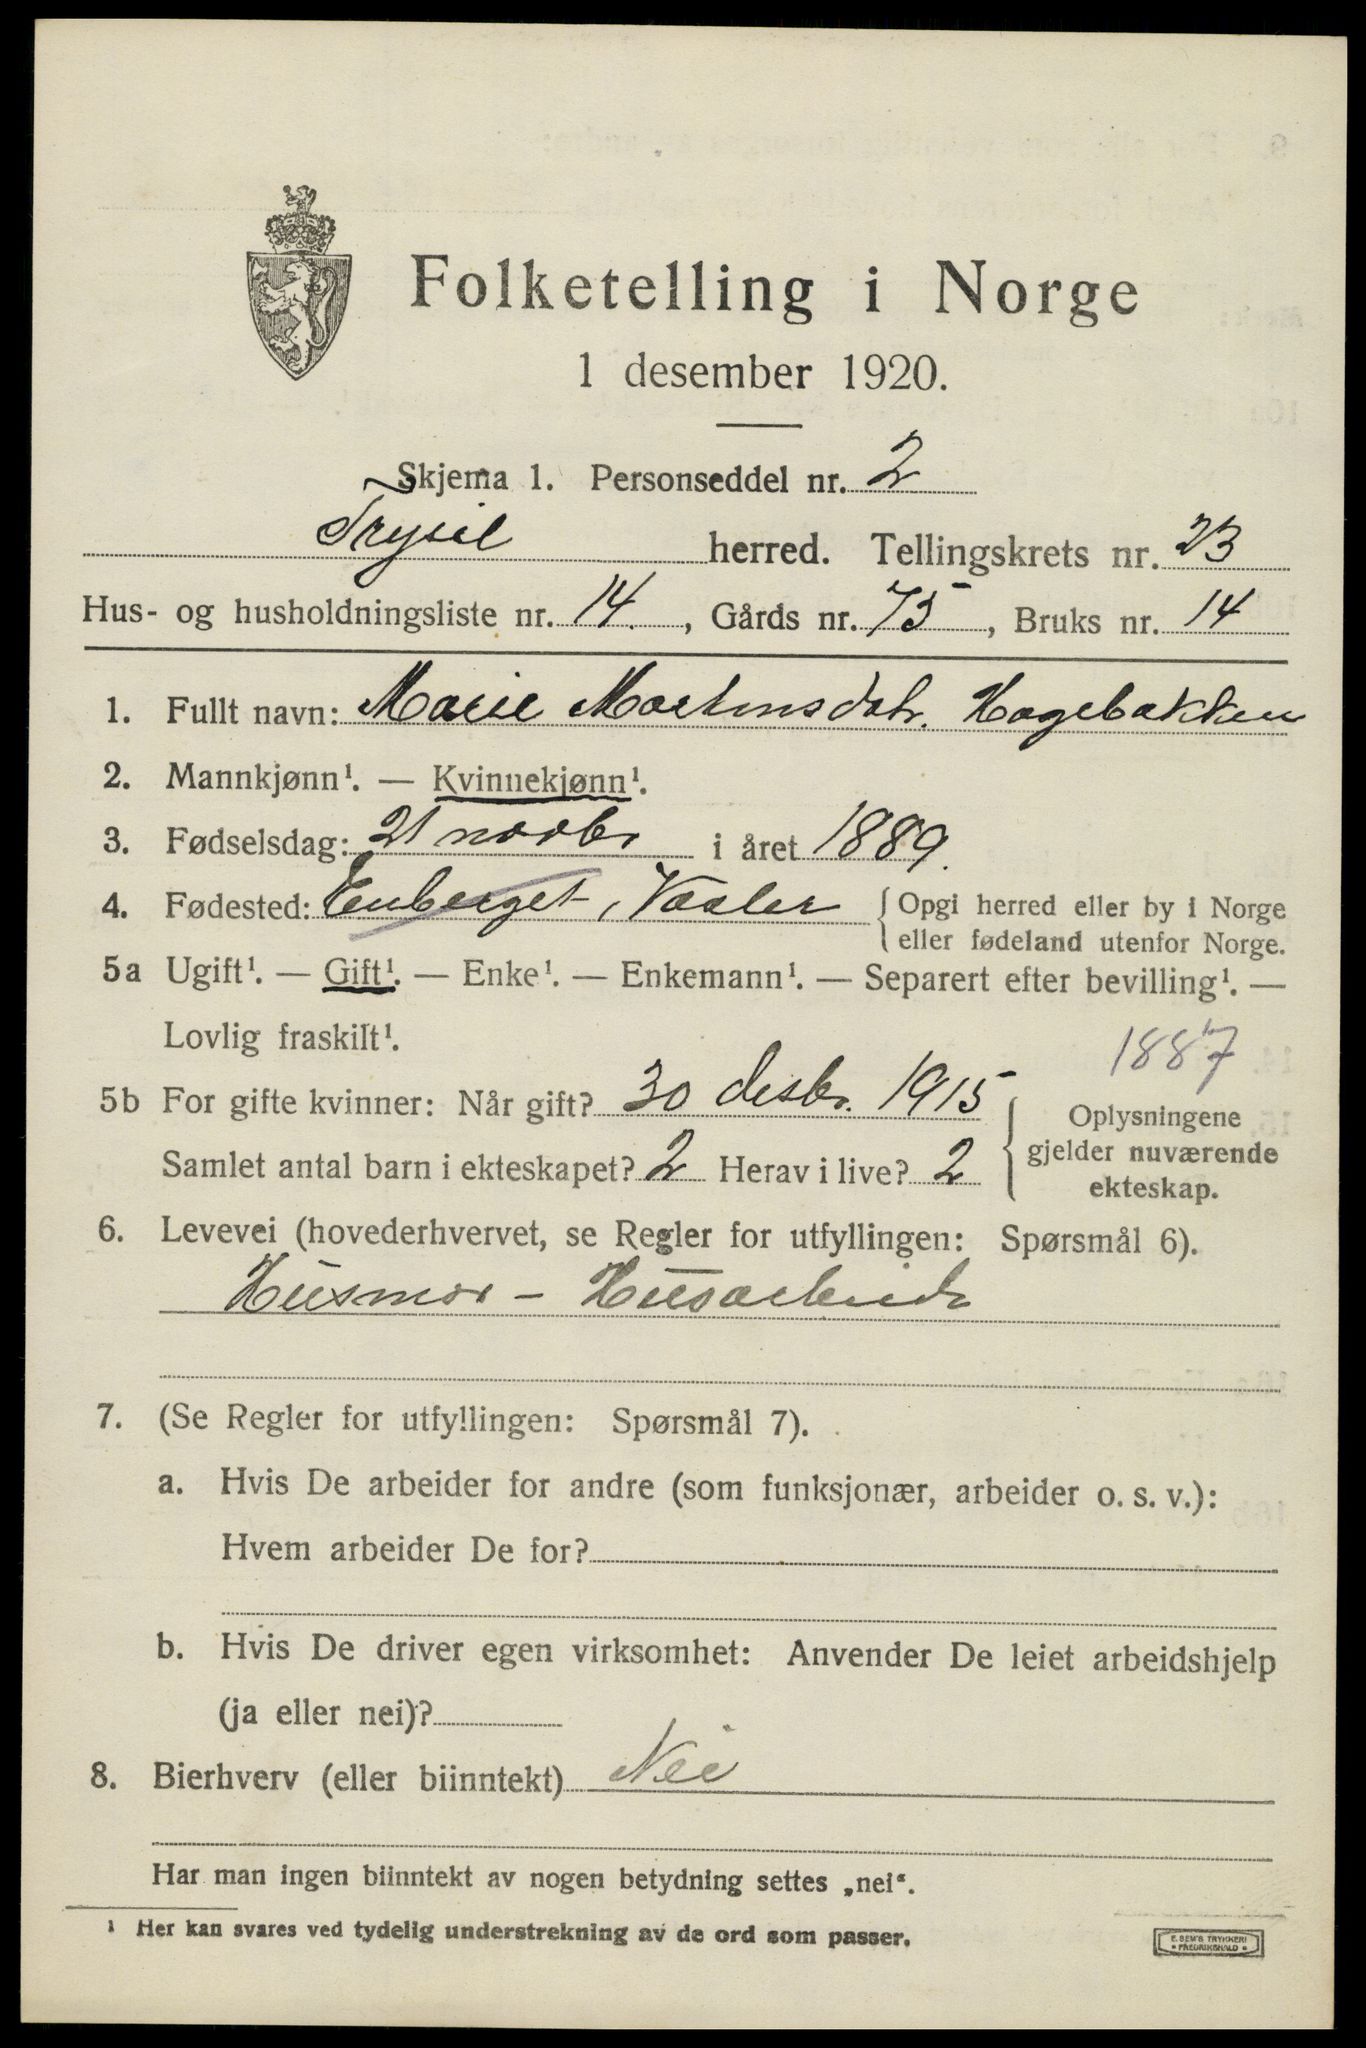 Folketelling i Norge
1 desember 1920.
Skjema 1. Personseddel nr. 2
Trysil herred. Tellingskrets nr. 23
Hus- og husholdningsliste nr. 14. , Gårds nr. 75 , Bruks nr. 14
1. Fullt navn: Marie Martinsdatr. Hagebakken
2. Mannkjønn¹. — Kvinnekjønn¹.
3. Fødselsdag: 21 novbr i året 1889.
4. Fødested: Enberget, Vaaler { Opgi herred eller by i Norge
eller fødeland utenfor Norge.
5a Ugift¹. — Gift¹. — Enke¹. — Enkemann¹. — Separert efter bevilling¹. —
Lovlig fraskilt¹.
1887
5b For gifte kvinner: Når gift? 30 desbr. 1915
Samlet antal barn i ekteskapet? 2 Herav i live? 2
{ Oplysningene
gjelder nuværende
ekteskap.
6. Levevei (hovederhvervet, se Regler for utfyllingen: Spørsmål 6).
Husmor – Husarbeide
7. (Se Regler for utfyllingen: Spørsmål 7).
a. Hvis De arbeider for andre (som funksjonær, arbeider o. s. v.):
Hvem arbeider De for?
b. Hvis De driver egen virksomhet: Anvender De leiet arbeidshjelp
(ja eller nei)?
8. Bierhverv (eller biinntekt) Nei
Har man ingen biinntekt av nogen betydning settes „nei“.
¹ Her kan svares ved tydelig understrekning av de ord som passer.
E. SEM'S TRYKKERI
• FREDRIKSHALD •